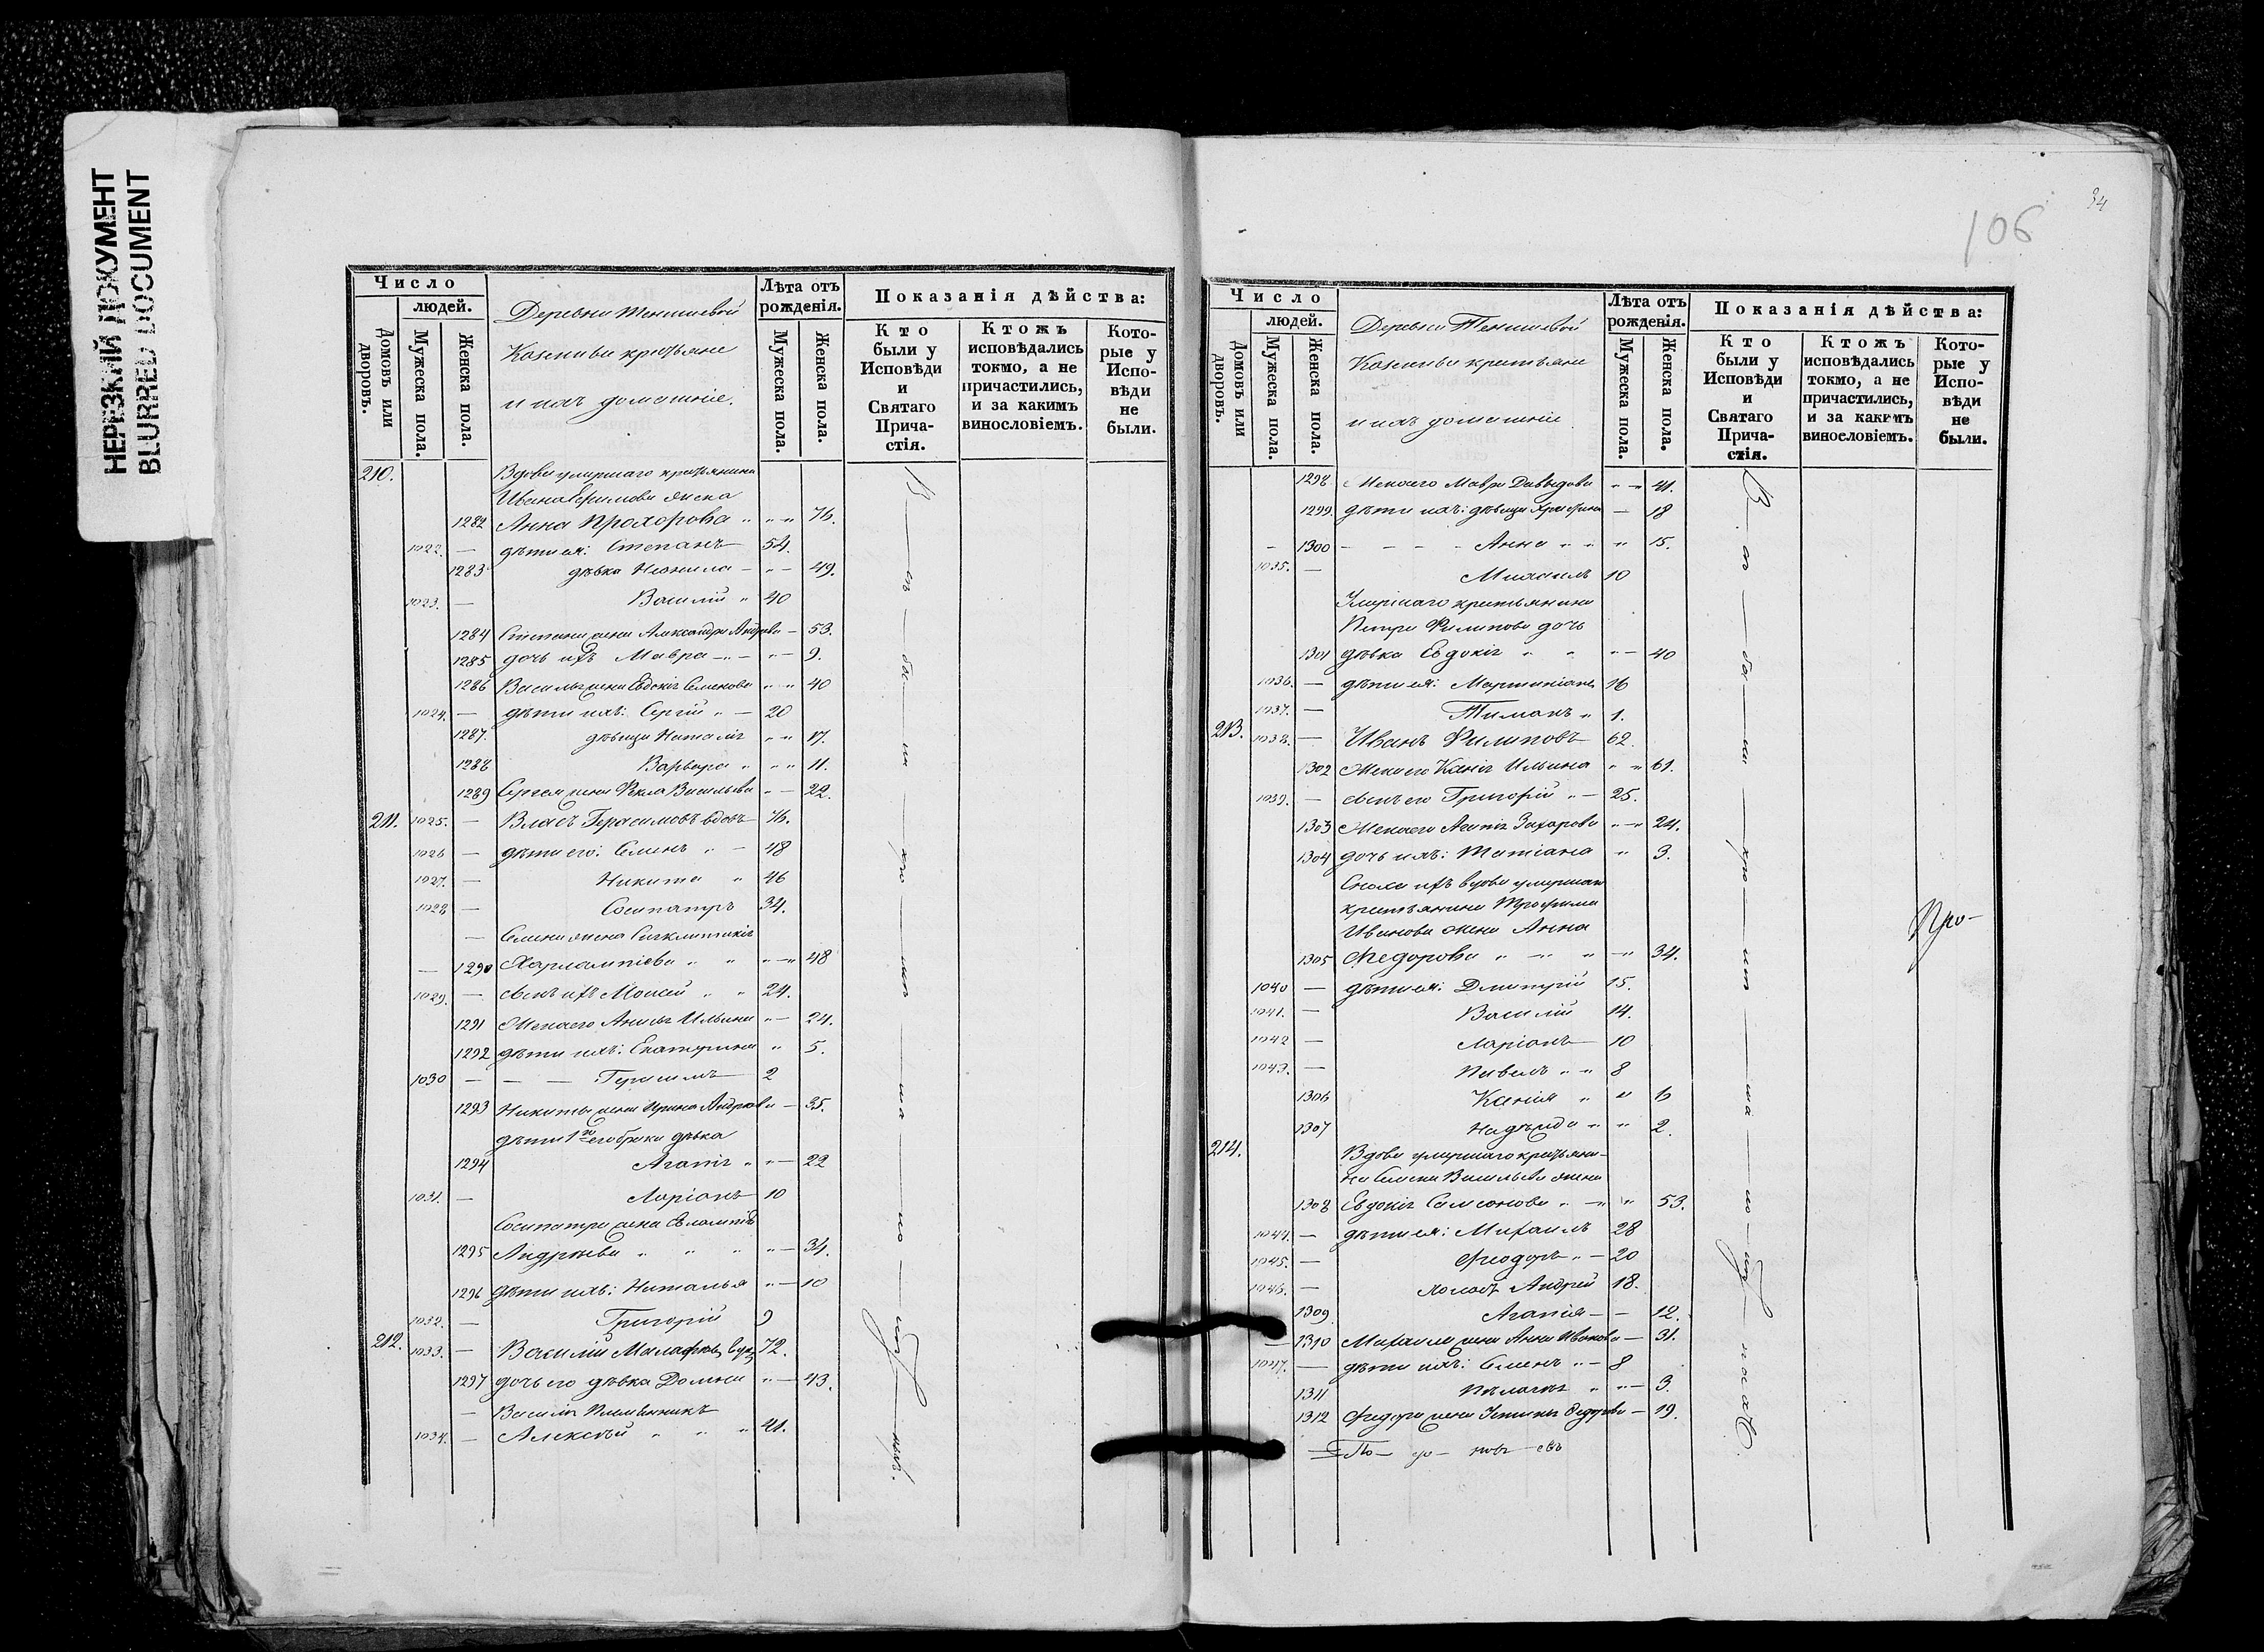 НЕРЕЗКИЙ ДОКУМЕНТ
BLURRED DOCUMENT
Число
людей.
Домовъ или дворовъ.
Мужеска пола.
Женска пола.
Деревни Теншевой
Казенные крестьяне
и ихъ домашніе.
Лѣта отъ рожденія.
Мужеска пола.
Женска пола.
Показанія дѣйства:
Кто были у Исповѣди и Святаго Причастія.
Ктожъ исповѣдались токмо, а не причастились, и за какимъ винословіемъ.
Которые у Исповѣди не были.
210. Вдова умершаго крестьянина
Ивана Ефимова жена
1282 Анна Прохорова " " " 76.
1022. — дѣти ея: Степанъ 54.
1283 дѣвка Неонила — " — 49.
1023. — Василій " 40
1284 Степана жена Александра Андреева — 53.
1285 дочь ихъ Мавра — " — 9.
1286 Василья жена Евдокія Семенова " " 40
1024. — дѣти ихъ: Сергій " — 20
1287. дѣвица Наталія " " 17.
1288 Варвара " " " 11.
1289 Сергея жена Фекла Васильева " — 22.
211. 1025. — Власъ Герасимовъ вдовъ 76.
1026 — дѣти его: Семенъ " — 48
1027. — Никита " 46
1028 — Сосипатръ 34.
— Семена жена Синклитикія
— 1290 Харлампіева " " " — " 48
1029. — сынъ ихъ Моисей " " 24.
1291 Жена его Анисья Ильина " — 24.
1292 дѣти ихъ: Екатерина " 5.
1030 — — — Герасимъ 2
1293 Никиты жена Ирина Андреева — 35.
дѣти 1го его брака дѣвка
1294 Агапія " " — 22
1031. — Ларіонъ 10
Сосипатра жена Евлампія
1295 Андреева " " " " — 34.
1296 дѣти ихъ: Наталья " — 10
1032. — Григорій 9
212. 1033. — Василій Малафѣевъ вдовъ 72.
1297 дочь его дѣвка Домна " — 43.
— Василія племянникъ
1034. — Алексѣй " " " 41.
В — съ — бы — ли — при — ча — ще — ны.
34
106
Число
людей.
Домовъ или дворовъ.
Мужеска пола.
Женска пола.
Деревни Теншевой
Казенные крестьяне
и ихъ домашніе.
Лѣта отъ рожденія.
Мужеска пола.
Женска пола.
Показанія дѣйства:
Кто были у Исповѣди и Святаго Причастія.
Ктожъ исповѣдались токмо, а не причастились, и за какимъ винословіемъ.
Которые у Исповѣди не были.
1298 Жена его Мавра Давыдова " — " 41.
1299. дѣти ихъ: дѣвица Христина — 18
— 1300 — — — Анна " " " 15.
1035. — Михаилъ 10
Умершаго крестьянина
Петра Филипова дочь
1301 дѣвка Евдокія " " " — 40
1036. — дѣти ея: Мартиніанъ 16
1037. — Тимонъ " 1.
213. 1038. — Иванъ Филиповъ 62.
1302 Жена его Ксенія Ильина " " 61.
1039. — сынъ его Григорій " — 25.
1303 Жена его Агапія Захарова " — " 24.
1304 дочь ихъ: Татіана " 3.
Сноха ихъ вдова умершаго
крестьянина Трофима
Иванова жена Анна
1305 Федорова " — " " — " 34.
1040 — дѣти ея: Дмитрій 15.
1041. — Василій 14.
1042 — Ларіонъ 10
1043. — Павелъ " " 8
1306 Ксенія " " 6
1307 Надежда " " 2.
214. Вдова умершаго крестьяни-
на Семена Васильева жена
1308 Евдокія Самсонова " — " " 53.
1044. — дѣти ея: Михаилъ 28
1045. — Феодоръ " — 20
1046. — холостъ Андрей 18.
1309 Агапія — — 12.
— 1310 Михаила жена Анна Иванова — 31.
1047. — дѣти ихъ: Семенъ " — 8
1311 Пелагія " " — 3.
1312 Федора жена Устинія Федорова — 19.
Про-